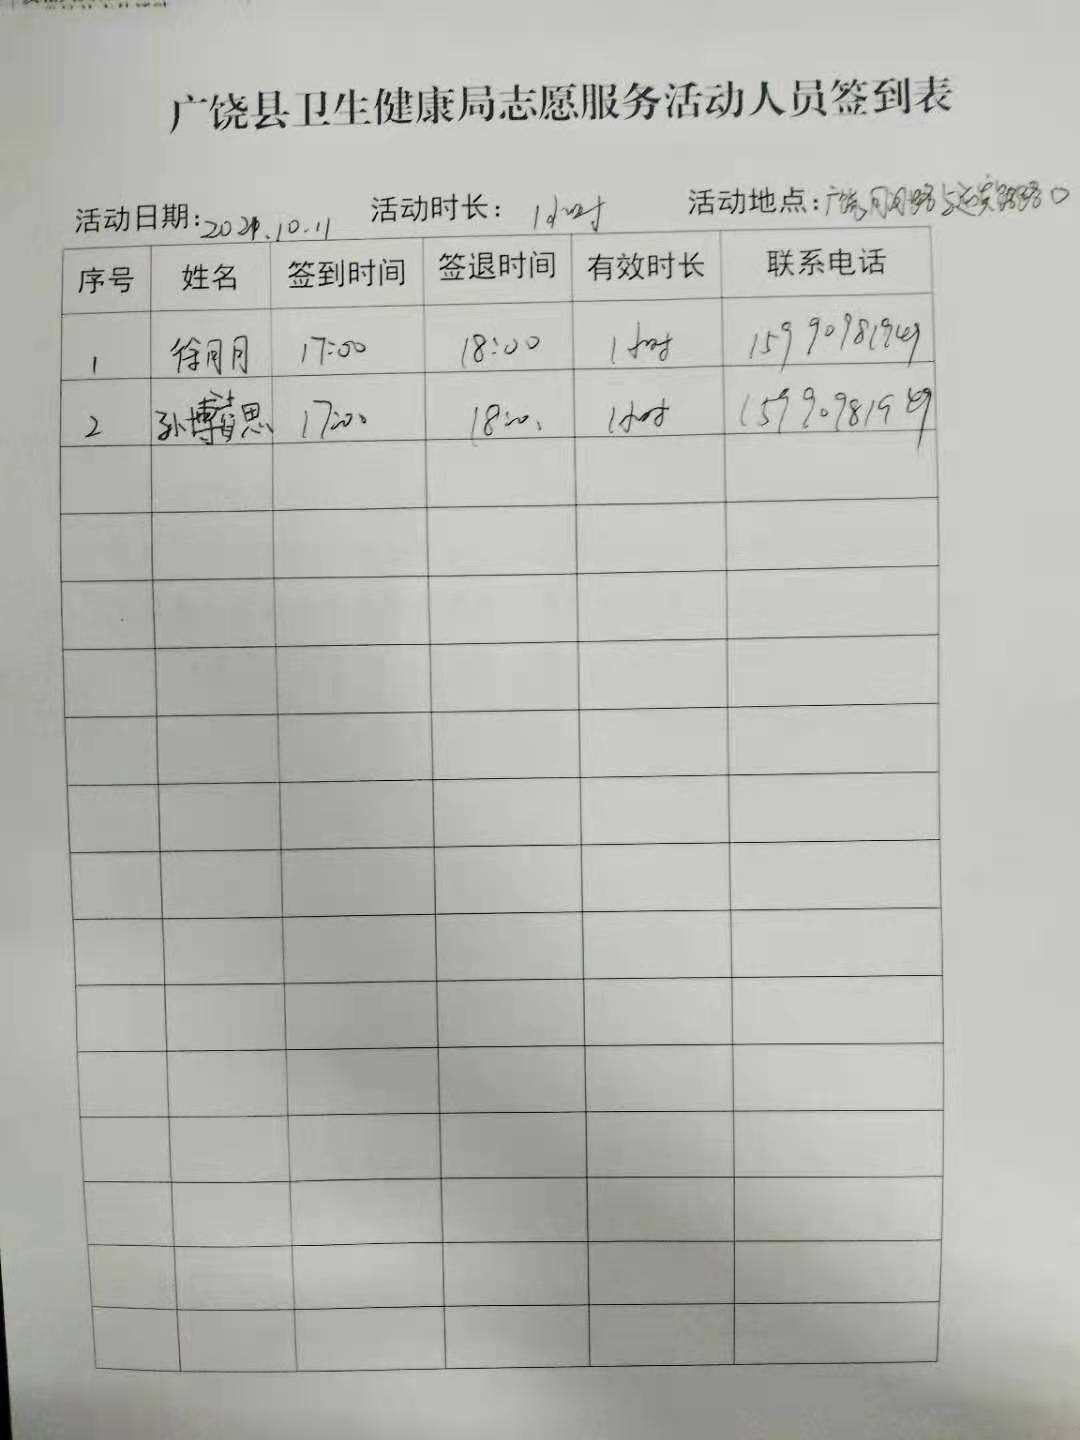 广饶县卫生健康局志愿服务活动人员签到表
活动日期: 2021.10.11 活动时长: 1小时 活动地点: 广饶月月路与路口
序号 姓名 签到时间 签退时间 有效时长 联系电话
1 徐月月 17:00 18:00 1小时 15990981949
2 孙博思 17:00 18:00 1小时 15990981949